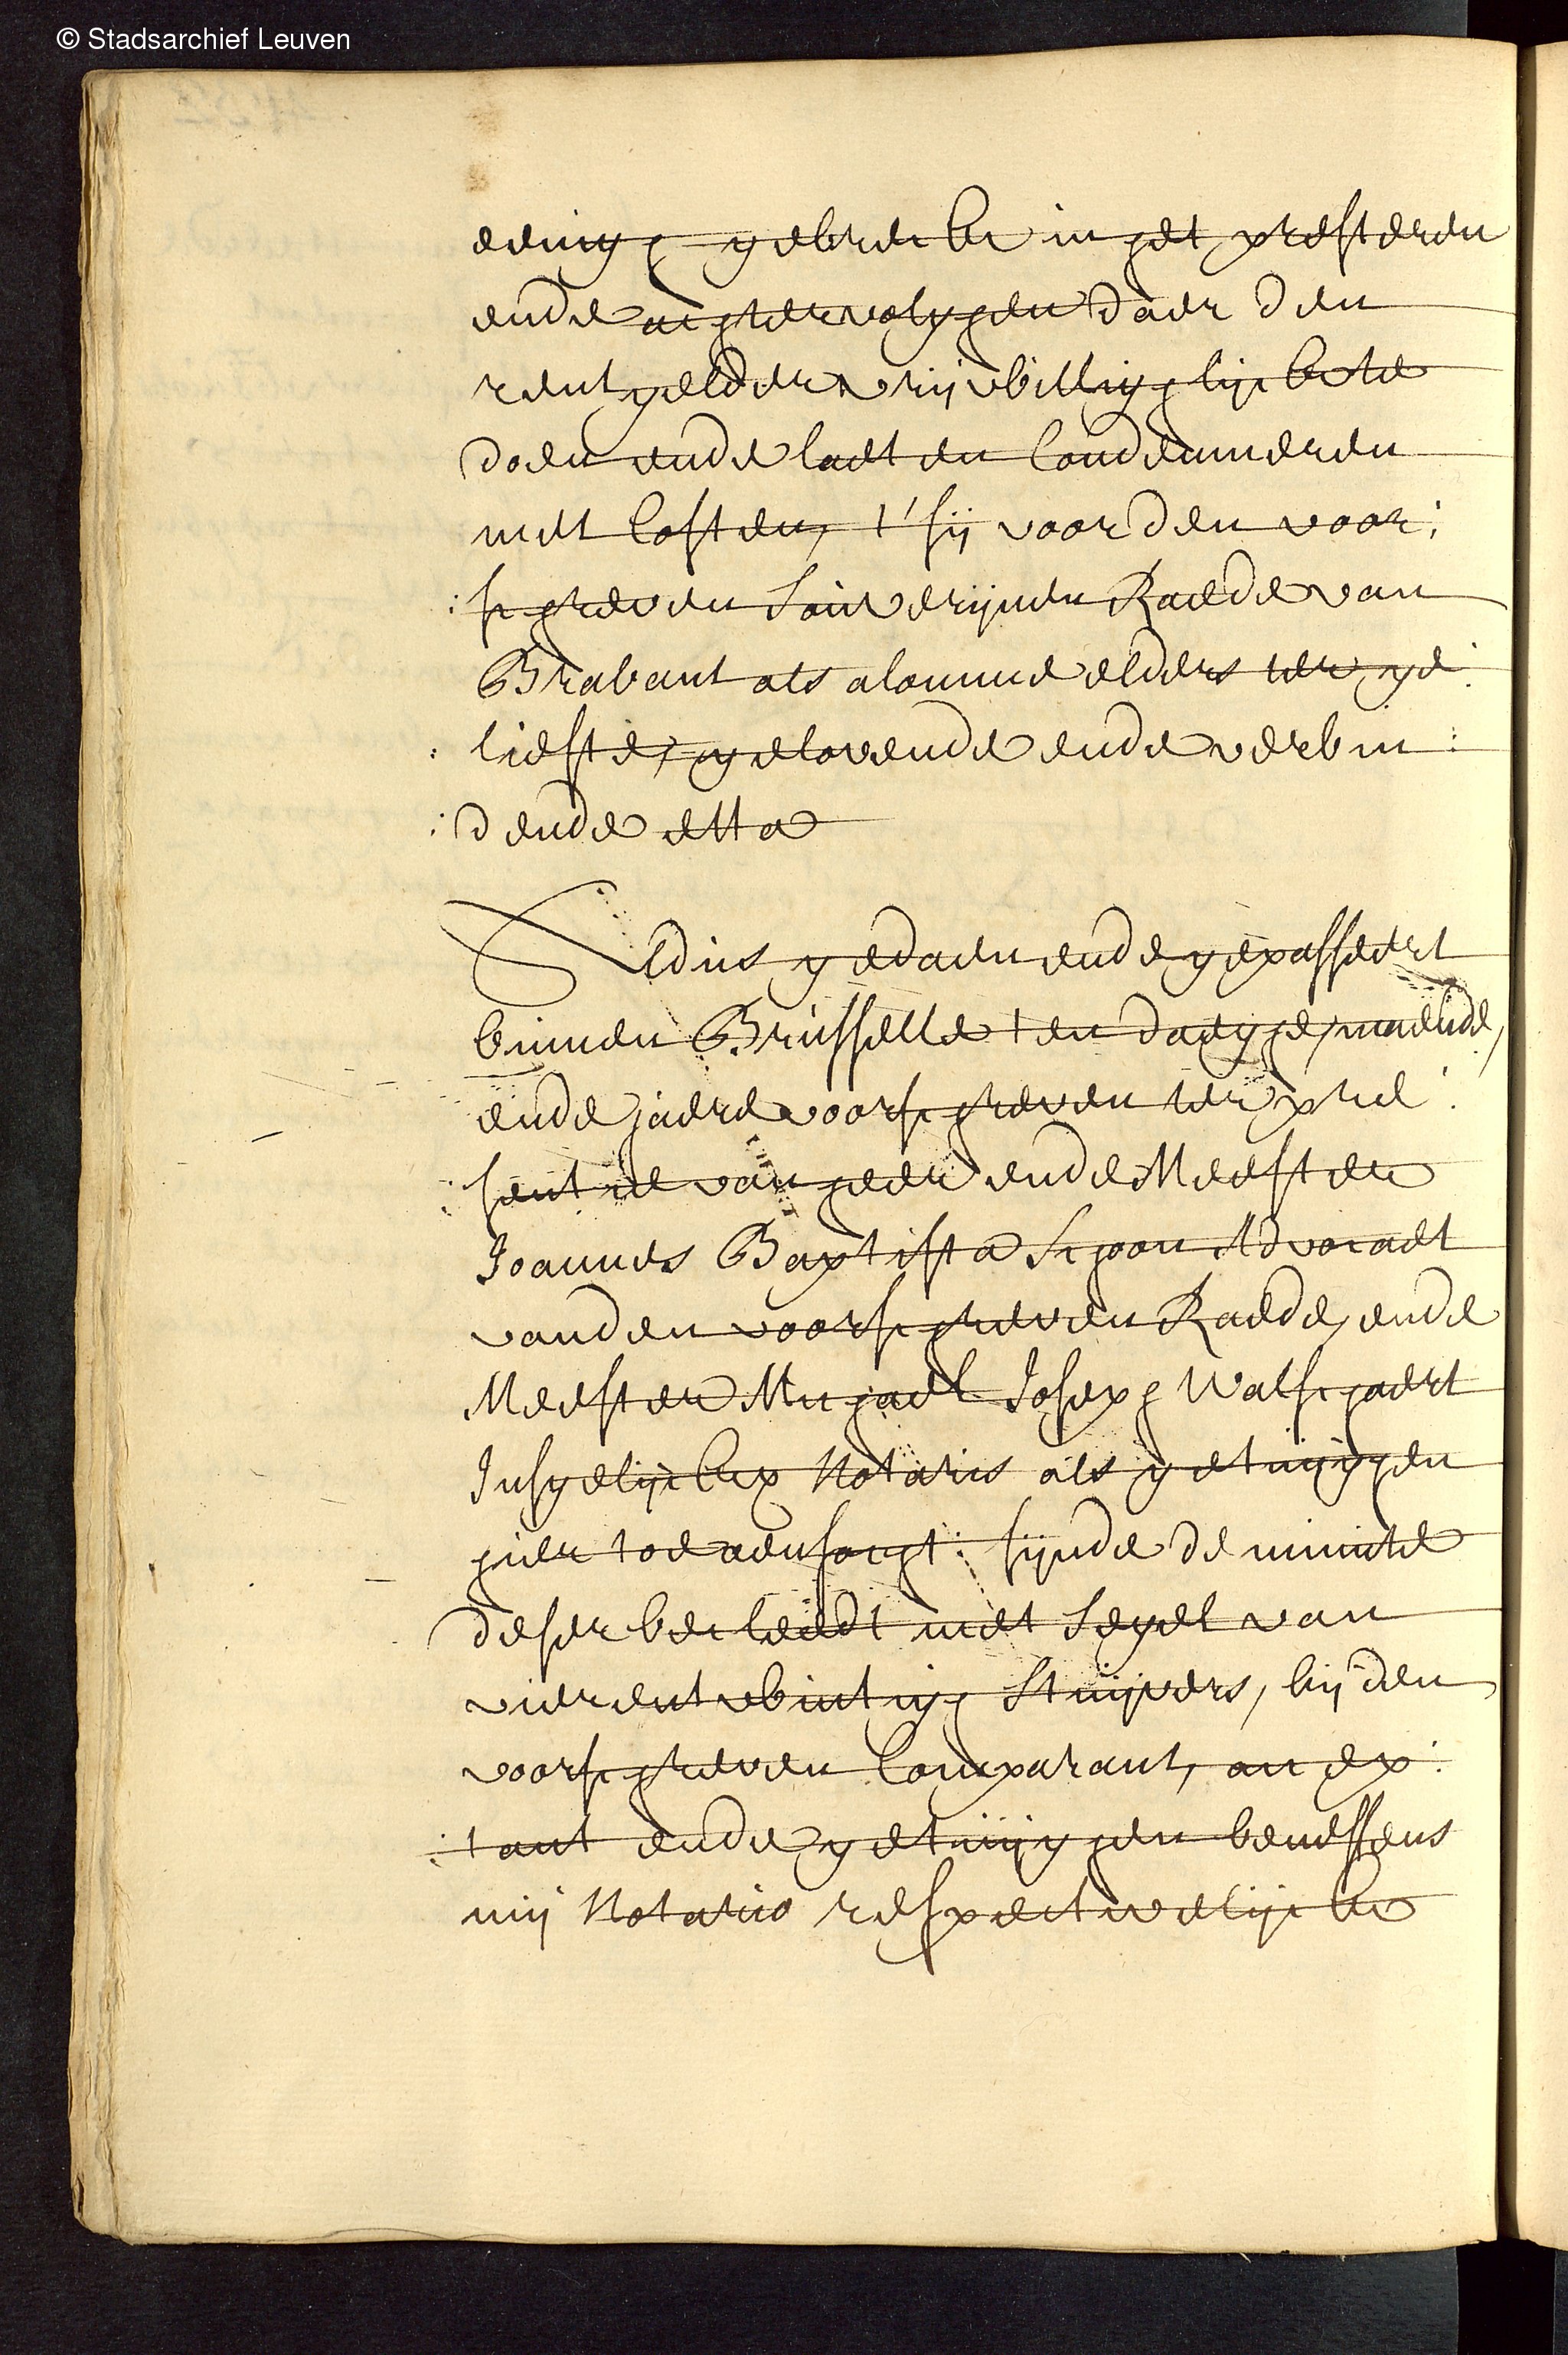 © Stadsarchief Leuven
eenigh gebrecke in het presteren
ende achtervolghen daer den
rentgelder vrijwillighlijck te
doen ende laeten Condemneren
met Costen, t'sij voor den voor:
:schreven Souverijnen Raede van
Brabant als alomme elders ter ge:
: liefte, gelovende ende verbin:
: dende etta
Aldus gedaen ende gepasseert
binnen Brussele ten daeghe, maende,
ende jaere voorschreven ter pre:
: sentie van heer ende Meester
Joannes Baptista Schoon Advocaet
vanden voorschreven Raede, ende
Meester Michael Joseph Walschaert
Insgelijckx Notaris als getuijghen
hier toe aensocht: sijnde de minute
deser becleedt met Segel van
vierentwintigh Stuijvers, bij den
voorschreven Comparant, acchep:
: tant ende getuijghen beneffens
mij Notario respectivelijck